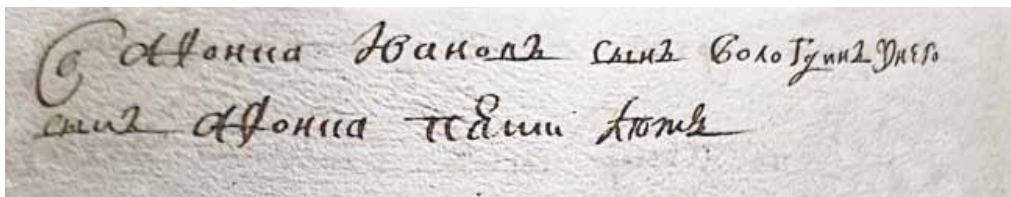 Афонка Ивановъ сынъ Вологдинъ Унего
сынъ Афонка лѣтъ